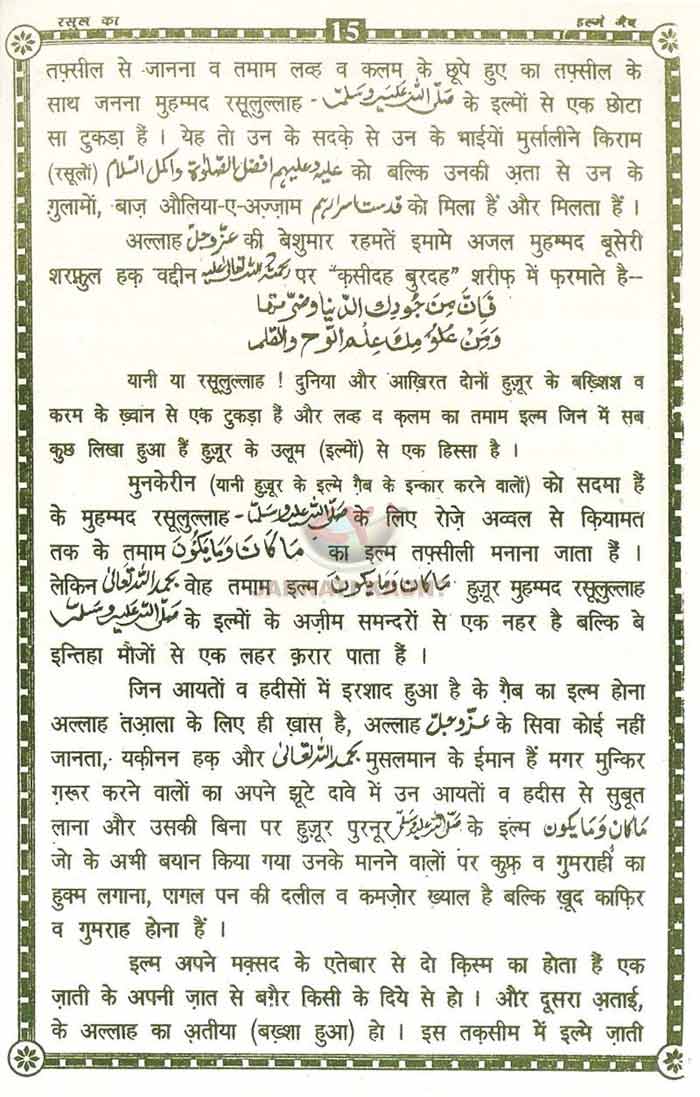 रसूल का 15 इल्मे ग़ैब
तफ़्सील से जानना व तमाम लव्ह व कलम के छूपे हुए का तफ़्सील के
साथ जनना मुहम्मद रसूलुल्लाह - صلی اللہ علیہ وسلم के इल्मों से एक छोटा
सा टुकड़ा हैं । येह तो उन के सदके से उन के भाईयों मुर्सालीने किराम
(रसूलों) علیہ وعلیہم افضل الصلوٰۃ واکمل السلام को बल्कि उनकी अ़ता से उन के
गु़लामों, बाज़ औलिया-ए-अज़्ज़ाम قدست اسرارہم को मिला हैं और मिलता हैं ।
अल्लाह عزوجل की बेशुमार रहमतें इमामे अजल मुहम्मद बूसेरी
शरफ़ुल हक़ वद्दीन رحمۃ اللہ تعالیٰ علیہ पर “क़सीदह बुरदह” शरीफ़ में फ़रमाते है--
فَاِنَّ مِنْ جُودِكَ الدُّنیا وَضَرَّتَها
وَمِنْ عُلُومِكَ عِلْمُ الَّوحِ والقلمِ
यानी या रसूलुल्लाह ! दुनिया और आख़िरत दोनों हुज़ूर के बख़्शिश व
करम के ख़्वान से एक टुकड़ा हैं और लव्ह द क़लम का तमाम इल्म जिन में सब
कुछ लिखा हुआ हैं हुज़ूर के उलूम (इल्मों) से एक हिस्सा है ।
मुनकेरीन (यानी हुज़ूर के इल्मे ग़ैब के इन्कार करने वालों) को सदमा हैं
के मुहम्मद रसूलुल्लाह - صلی اللہ علیہ وسلم के लिए रोज़े अव्वल से क़ियामत
तक के तमाम مَاکَانَ وَمَایکُونُ का इल्म तफ़्सीली मनाना जाता हैं ।
लेकिन بحمد اللہ تعالیٰ वोह तमाम इल्म مَاکَانَ وَمَایکُونُ हुज़ूर मुहम्मद रसूलुल्लाह
صلی اللہ علیہ وسلم के इल्मों के अज़ीम समन्दरों से एक नहर है बल्कि बे
इन्तिहा मौजों से एक लहर क़रार पाता हैं ।
जिन आयतों व हदीसों में इरशाद हुआ है के ग़ैब का इल्म होना
अल्लाह तंआ़ला के लिए ही ख़ास है, अल्लाह عزوجل के सिवा कोई नहीं
जानता, यक़ीनन हक़ और بحمد اللہ تعالیٰ मुसलमान के ईमान हैं मगर मुन्किर
ग़रूर करने वालों का अपने झूटे दावे में उन आयतों व हदीस से सुबूत
लाना और उसकी बिना पर हुज़ूर पुरनूर صلی اللہ علیہ وسلم के इल्म مَاکَانَ وَمَایکون
जो के अभी बयान किया गया उनके मानने वालों पर कुफ़्र व गुमराही का
हुक्म लगाना, पागल पन की दलील व कमज़ोर ख्याल है बल्कि ख़ूद काफ़िर
व गुमराह होना हैं ।
इल्म अपने मक्सद के एतेबार से दो क़िस्म का होता हैं एक
ज़ाती के अपनी ज़ात से बग़ैर किसी के दिये से हो । और दूसरा अताई,
के अल्लाह का अतीया (बख़्शा हुआ) हो । इस तक़सीम में इल्मे ज़ाती